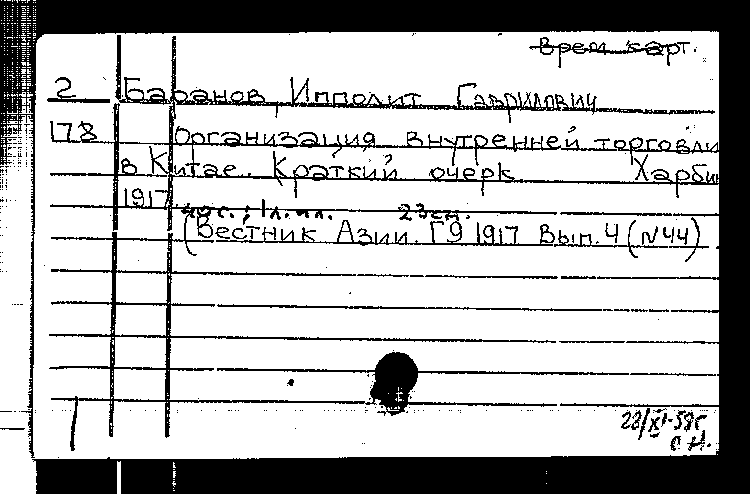 врем карт.
2 Баранов, Ипполит Гаврилович
178 Организация внутренней торговли
в Китае. Краткий очерк. Харбин
1917 40 с.; 1 л. ил. 23 см.
(Вестник Азии. Г9 1917 Вып. 4 (N44)
28/XI-58г
С.Н.